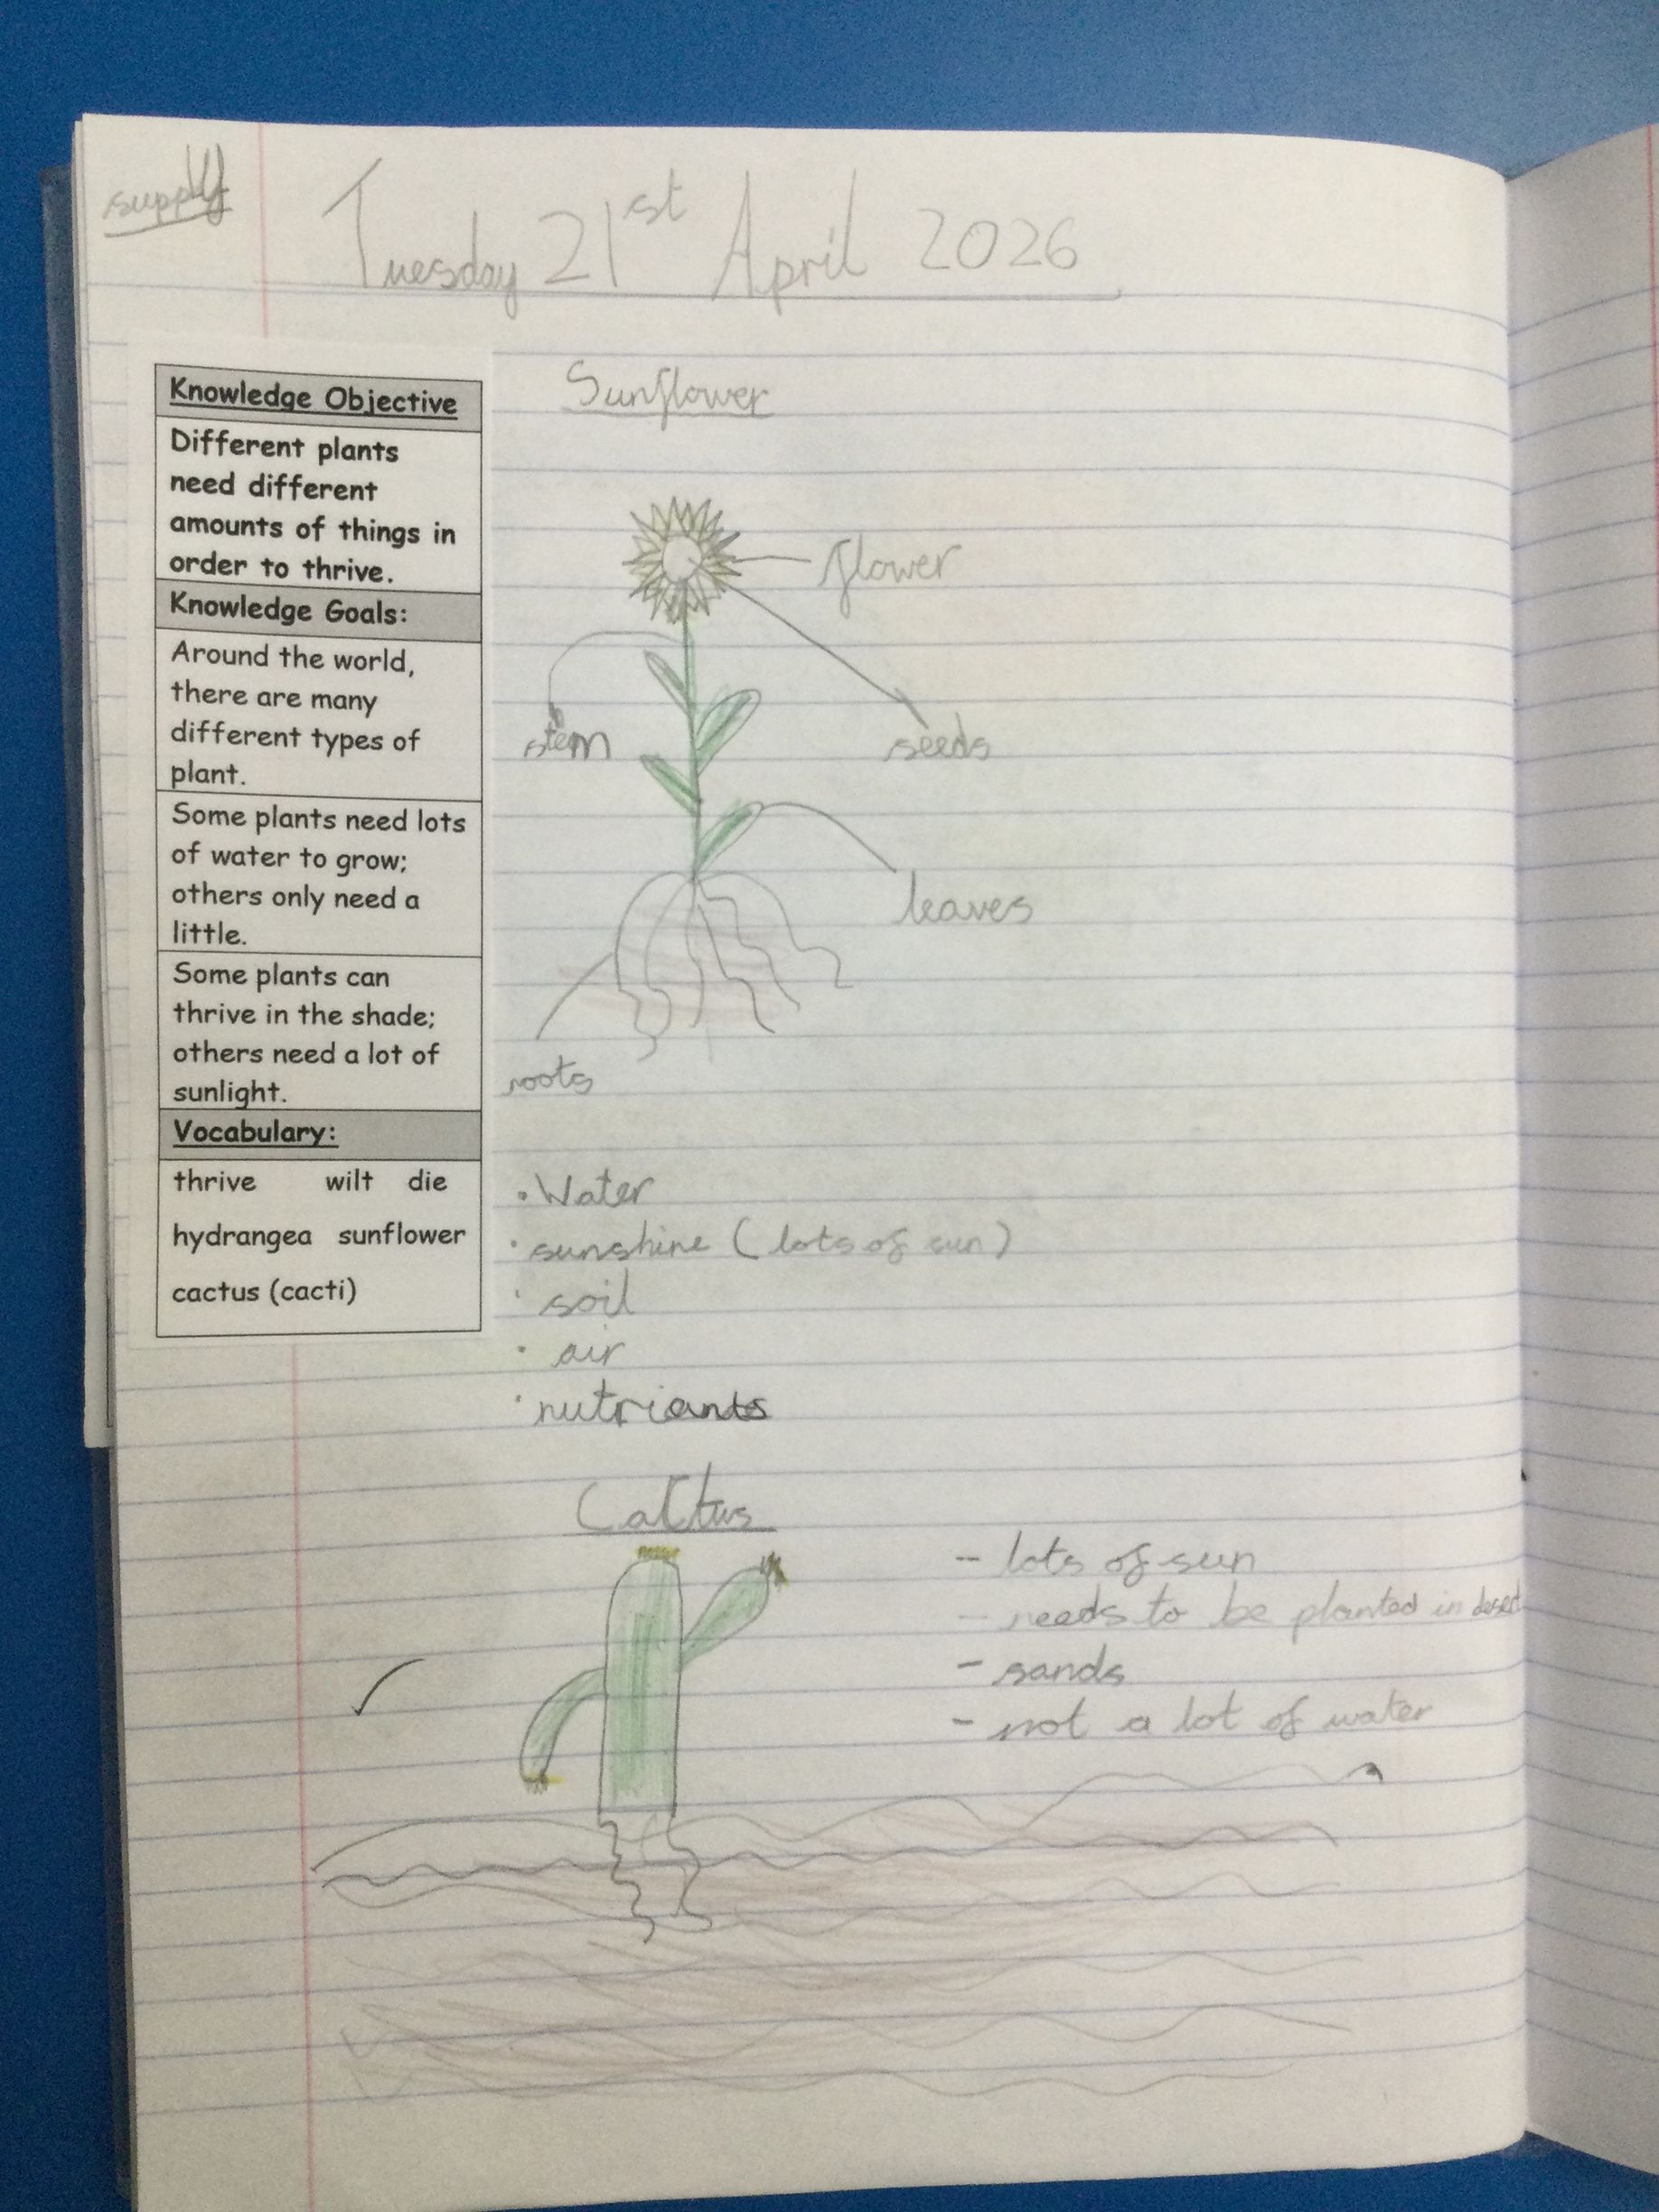 supply
Tuesday 21st April 2026
Knowledge Objective
Different plants
need different
amounts of things in
order to thrive.
Knowledge Goals:
Around the world,
there are many
different types of
plant.
Some plants need lots
of water to grow;
others only need a
little.
Some plants can
thrive in the shade;
others need a lot of
sunlight.
Vocabulary:
thrive wilt die
hydrangea sunflower
cactus (cacti)
Sunflower
flower
stem
seeds
leaves
roots
• Water
• sunshine (lots of sun)
• soil
• air
• nutriants
Cactus
- lots of sun
- needs to be planted in desert
- sands
- not a lot of water